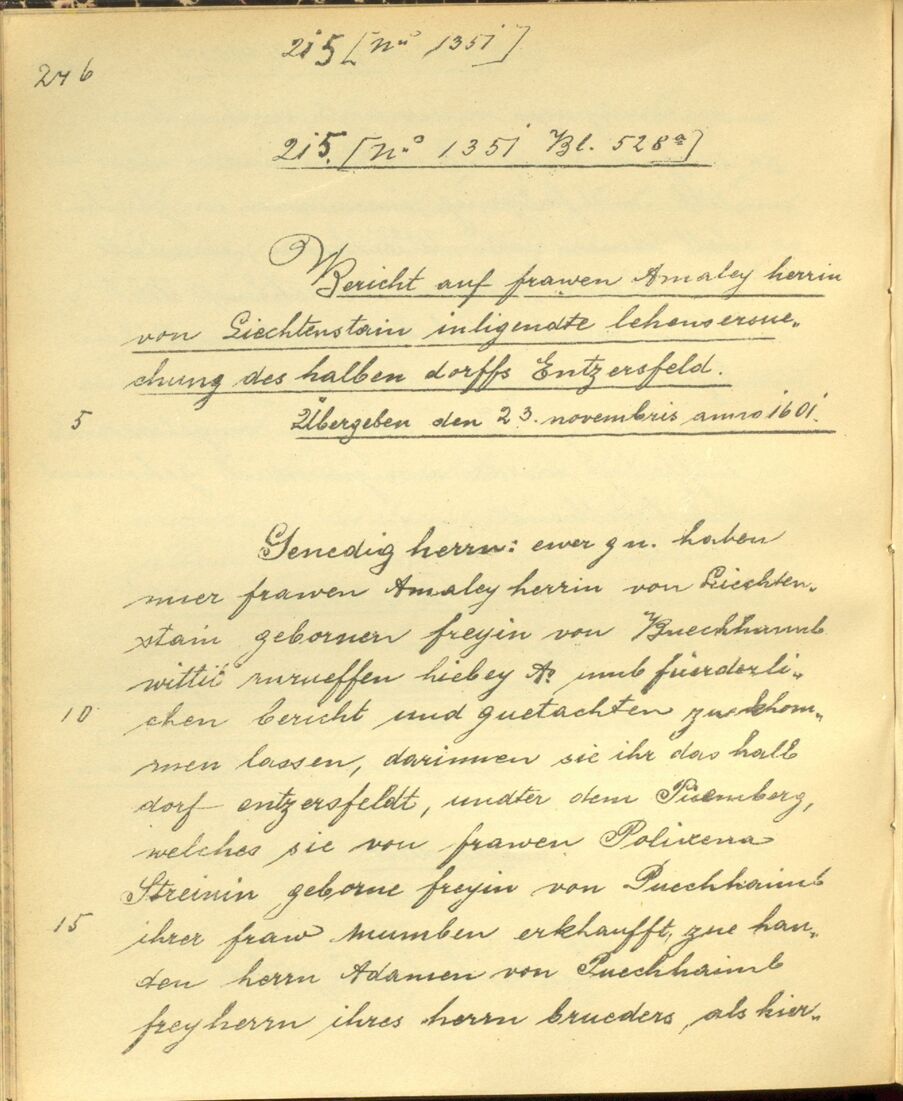 215 [No 1351]
276
215. [No 1351 Bl. 528a]
Bericht auf frawen Amaley herrin
von Liechtenstain inligendte lehensersue-
chung des halben dorffs Entzersfeld.
5 Übergeben den 23. novembris anno 1601.
Genedig herrn: ewer gn. haben
mier frawen Amaley herrin von Liechten-
stain gebornen freyin von Puechhaimb
wittib hiebey Ao umb fürderli-
10 chen bericht und guetachten zuekhom-
men lassen, darinnen sie ihr das halb
dorf entzersfeldt, undter dem
welches sie von frawen Polixena
Streinin geborne freyin von Puechhaimb
15 ihrer fraw Mumben erkhaufft, zue han-
den herrn Adamen von Puechhaimb
freyherrn ihres herrn brueders, als hier-